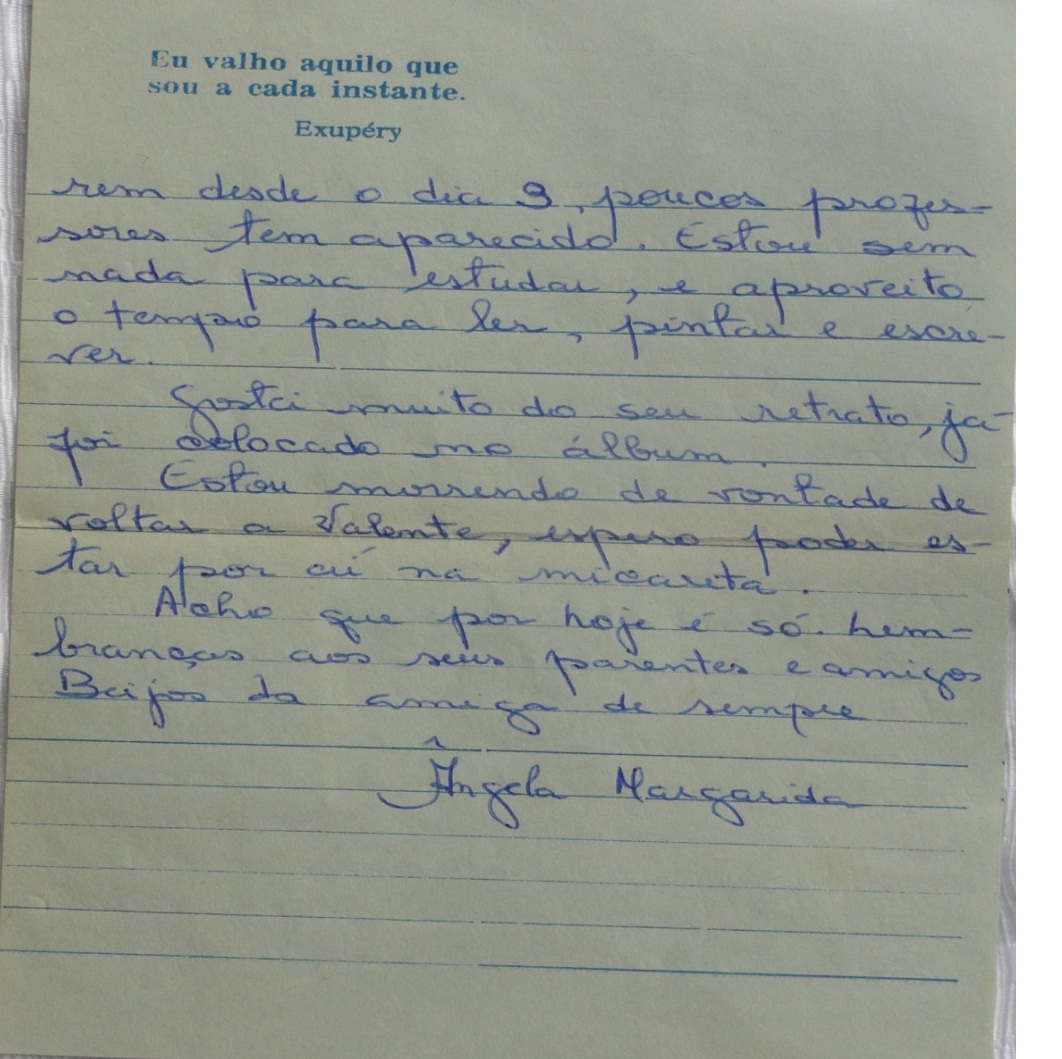 Eu valho aquilo que
sou a cada instante.
Exupéry
rem desde o dia 9, poucos profes-
sores tem aparecido. Estou sem
nada para estudar, e aproveito
o tempo para ler, pintar e escre-
ver.
Gostei muito do seu retrato, já
foi colocado no álbum.
Estou morrendo de vontade de
voltar a Valente, espero poder es-
tar por aí na micareta.
Acho que por hoje é só. Lem-
branças aos seus parentes e amigos
Beijos da amiga de sempre
Ângela Margarida